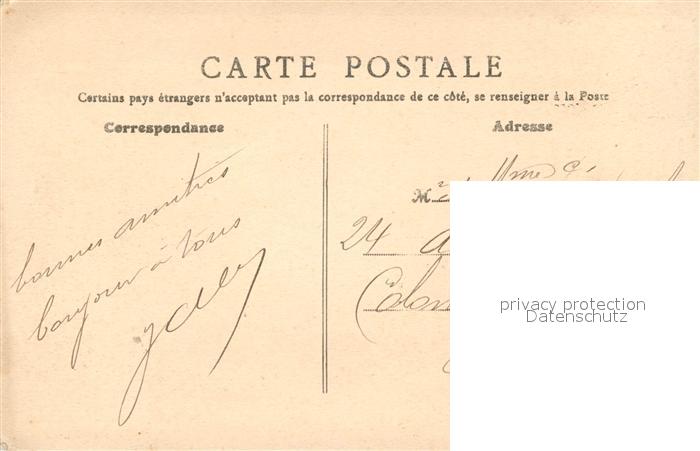 CARTE POSTALE
Certains pays étrangers n'acceptant pas la correspondance de ce côté, se renseigner à la Poste
Correspondance
Adresse
bonnes amitiés
bonjour à tous
M
Mme
24
privacy protection
Datenschutz